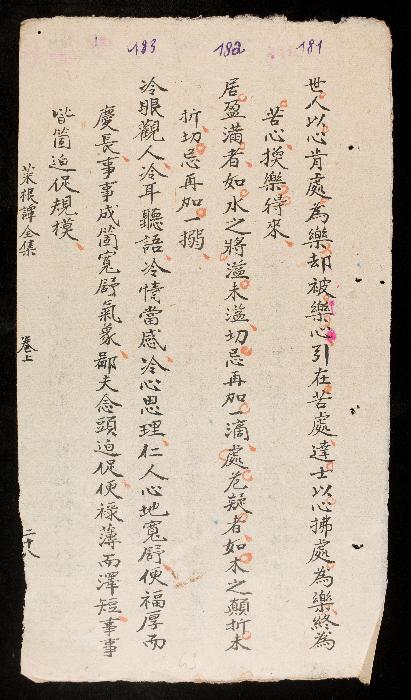 181
世人以心肯處為樂却被樂心引在苦處達士以心拂處為樂終為
苦心換樂得來
182
居盈滿者如水之將溢未溢切忌再加一滴處危疑者如木之顛折未
折切忌再加一搦
183
冷眼觀人冷耳聽語冷情當感冷心思理仁人心地寬舒便福厚而
慶長事事成箇寬舒氣象鄙夫念頭迫促便祿薄而澤短事事
皆箇迫促規模
菜根譚全集 卷上 二十八